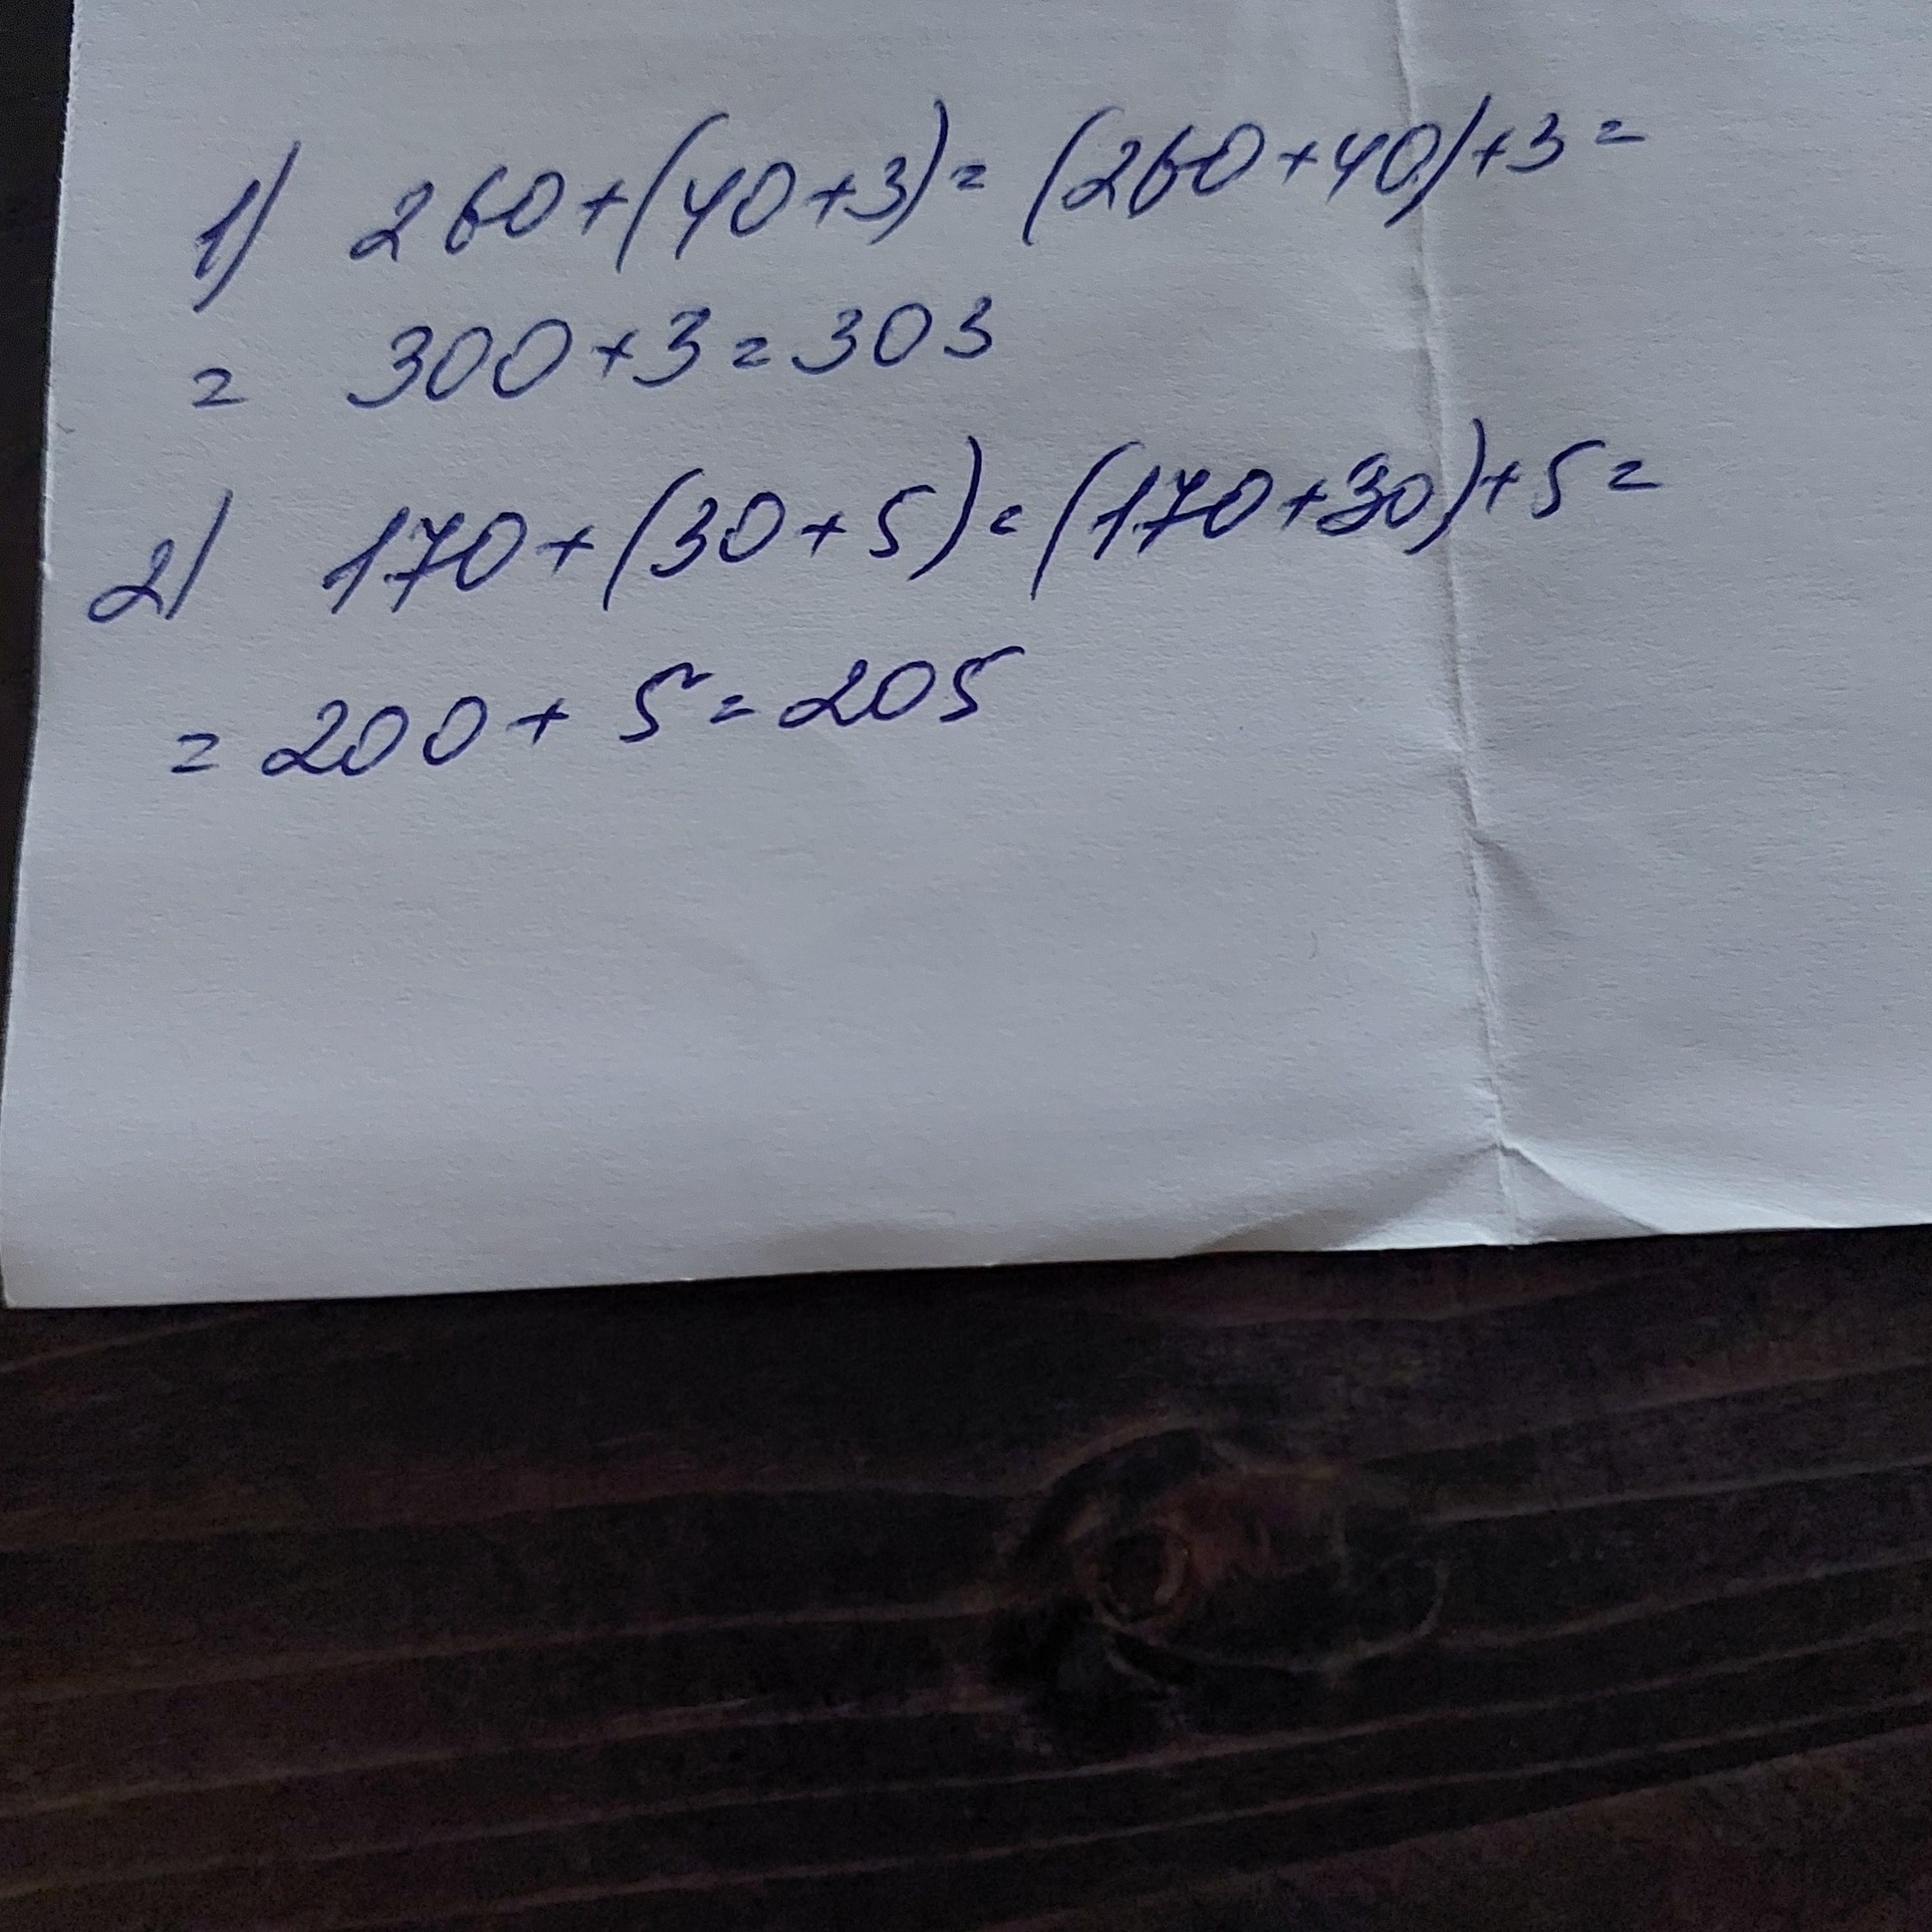 1) 260+(40+3)=(260+40)+3=
= 300+3=303
2) 170+(30+5)=(170+30)+5=
= 200+5=205